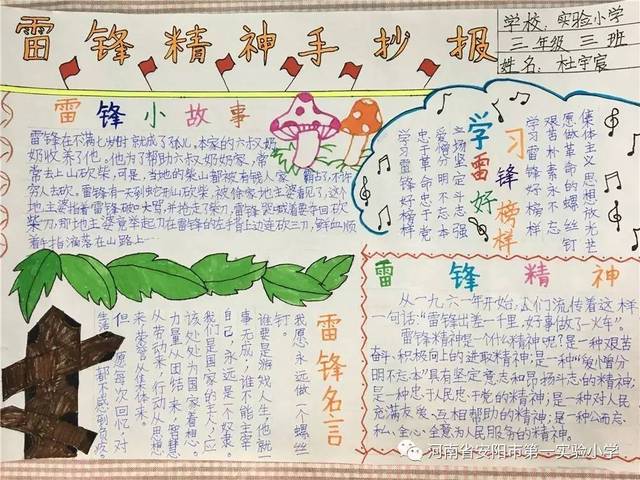 雷锋精神手抄报
学校:实验小学
三年级三班
姓名:杜宇宸
雷锋小故事
雷锋在不满七岁时就成了孤儿,本家的六叔奶
奶收养了他。他为了帮助六叔奶奶家,常
常去上山砍柴,可是,当地的柴山都被有钱人家霸占了,不许
穷人去砍。雷锋有一天到蛇形山砍柴,被徐家地主婆看见了,这个
地主婆指着雷锋破口大骂,并抢走了柴刀,雷锋哭喊着要夺回砍
柴刀,那地主婆竟举起刀在雷锋的左手背上边连砍三刀,鲜血顺
着手指滴落在山路上
学习雷锋好榜样
学习雷锋好榜样
忠于革命忠于党
爱憎分明不忘本
立场坚定斗志强
学习雷锋好榜样
艰苦朴素永不忘
愿做革命的螺丝钉
集体主义思想放光芒
雷锋精神
从一九六一年开始,人们流传着这样
一句话:“雷锋出差一千里,好事做了一火车”。
雷锋精神是个什么精神呢?是一种艰苦
奋斗、积极向上的进取精神;是一种“爱憎分
明不忘本”具有坚定意志和昂扬斗志的精神;
是一种忠于人民忠于党的精神;是一种对人民
充满友爱、互相帮助的精神;是一种公而忘
私、全心全意为人民服务的精神。
雷锋名言
我愿永远做一个螺丝
钉。
谁要是游戏人生,他就一
事无成;谁不能主宰
自己,永远是一个奴隶。
我们是国家的主人,应
该处处为国家着想。
力量从团结来,智慧
从劳动来,行动从思想
来,荣誉从集体来。
但愿每次回忆,对
生活都不感到负疚。
河南省安阳市第一实验小学